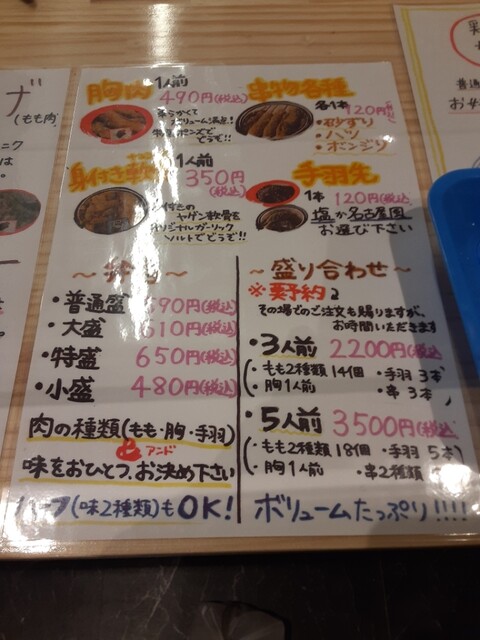 (もも肉)
胸肉 1人前
490円(税込)
柔らかくて
ボリューム満点!
特製ポンズで
どうぞ!!
串物各種
各1本
120円(税込)
・砂ずり
・ハツ
・ボンジリ
身付き軟骨 1人前
350円
(税込)
ヤゲン軟骨を
オリジナルガーリック
ソルトでどうぞ!!
手羽先
1本 120円(税込)
塩か名古屋風
お選び下さい
・普通盛 590円(税込)
・大盛 610円(税込)
・特盛 650円(税込)
・小盛 480円(税込)
肉の種類(もも・胸・手羽)
& アンド
味をおひとつ、お決め下さい
ハーフ(味2種類)もOK!
～盛り合わせ～
※要予約
その場でのご注文も賜りますが、
お時間いただきます
・3人前 2200円(税込)
・もも2種類14個 ・手羽3本
・胸1人前 ・串3本
・5人前 3500円(税込)
・もも2種類18個 ・手羽5本
・胸1人前 ・串2種類
ボリュームたっぷり!!!!
普通